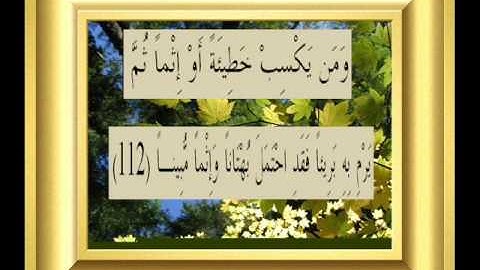 وَمَن يَكْسِبْ خَطِيئَةً أَوْ إِثْماً ثُمَّ
يَرْمِ بِهِ بَرِيئاً فَقَدِ احْتَمَلَ بُهْتَاناً وَإِثْماً مُّبِينـــاً (112)